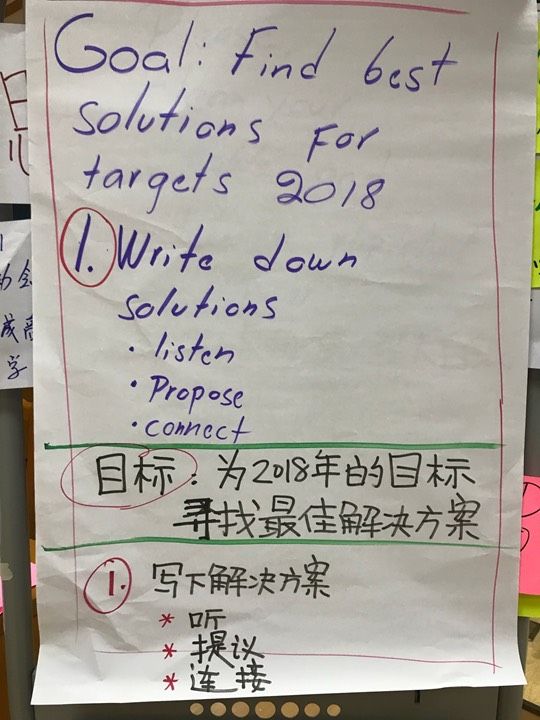 Goal: Find best
solutions For
targets 2018
1. Write down
solutions
• listen
• Propose
• connect
目标: 为2018年的目标
寻找最佳解决方案
1. 写下解决方案
* 听
* 提议
* 连接